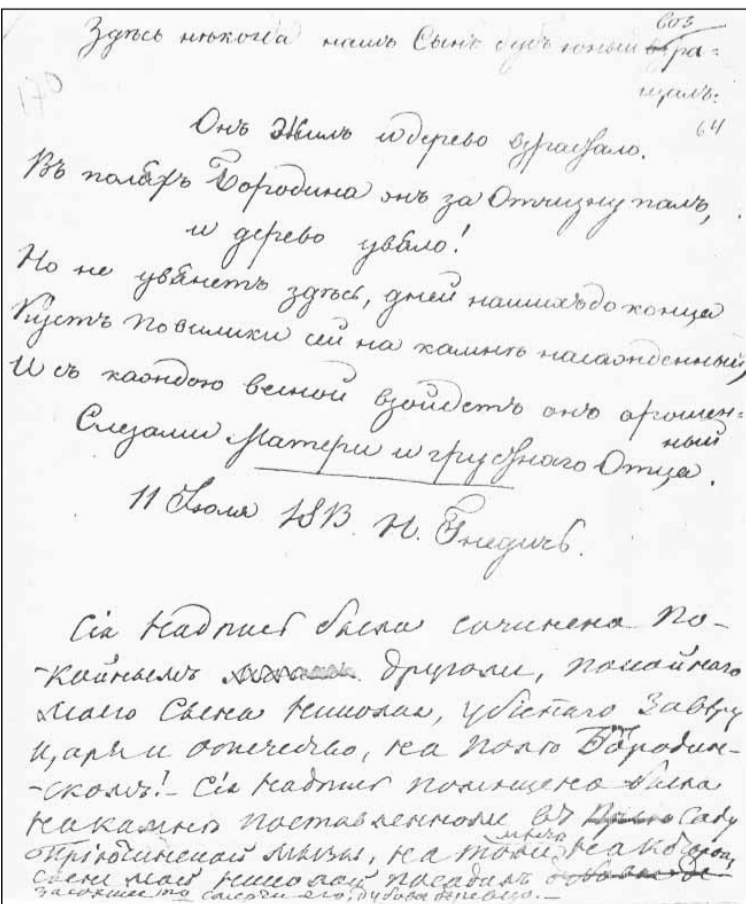 Здѣсь нѣкогда нашъ Сынъ дубъ юный воз
ра=
щалъ:
170
64
Онъ Жилъ и дерево взрастало.
Въ поляхъ Бородина онъ за Отчизну палъ,
и дерево увяло!
Но не увянетъ здѣсь, дней нашихъ до конца
Кустъ повилики сей на камнѣ насажденный,
И съ каждою весной взойдетъ онъ орошен=
ный
Слезами Матери и грустнаго Отца.
11 Июля 1813. Н. Гнедичь.
Сія надпись была сочинена по-
-койнымъ другомъ, покойнаго
моего Сына Николая, убіеннаго За вѣру
Царя и отечество, на полѣ Бородин-
-скомъ!- Сія надпись помещена была
на камнѣ поставленномъ въ Саду
Пріютинской мызы, на томъ мѣстѣ на которомъ,
сынъ мой Николай посадилъ
засохшее по смерти его, дубовое деревцо.-